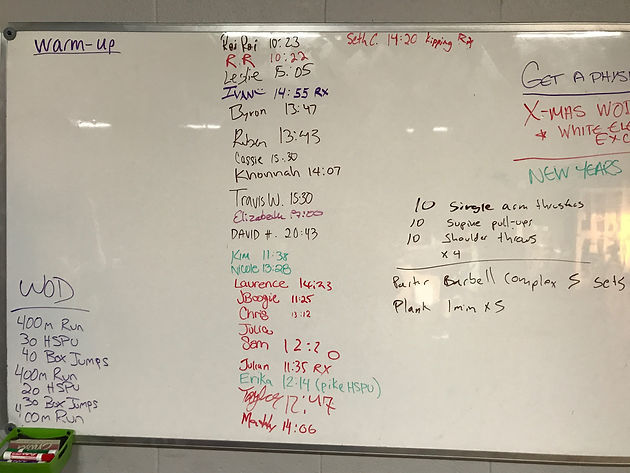 warm-up
WOD
400m Run
30 HSPU
40 Box Jumps
400m Run
20 HSPU
30 Box Jumps
400m Run
Roi Roi 10:23
R.R 10:22
Leslie 15:05
Ivan 14:55 RX
Byron 13:47
Ruben 13:43
Cassie 15:30
Khonnah 14:07
Travis W. 15:30
Elizabeth 17:00
DAVID H. 20:43
Kim 11:38
Nicole 13:28
Laurence 14:23
JBoogie 11:25
Chris 13:12
Julia
Sam 12:20
Julian 11:35 RX
Erika 12:14 (pike HSPU)
Taylor 12:47
14:06
Seth C. 14:20 Kipping Rx
GET A PHYSI
X-MAS WOD
* WHITE ELE
EXC
NEW YEARS
10 Single arm thrusters
10 Supine pull-ups
10 Shoulder throws
x 4
Partner Barbell Complex 5 sets
Plank 1min x 5